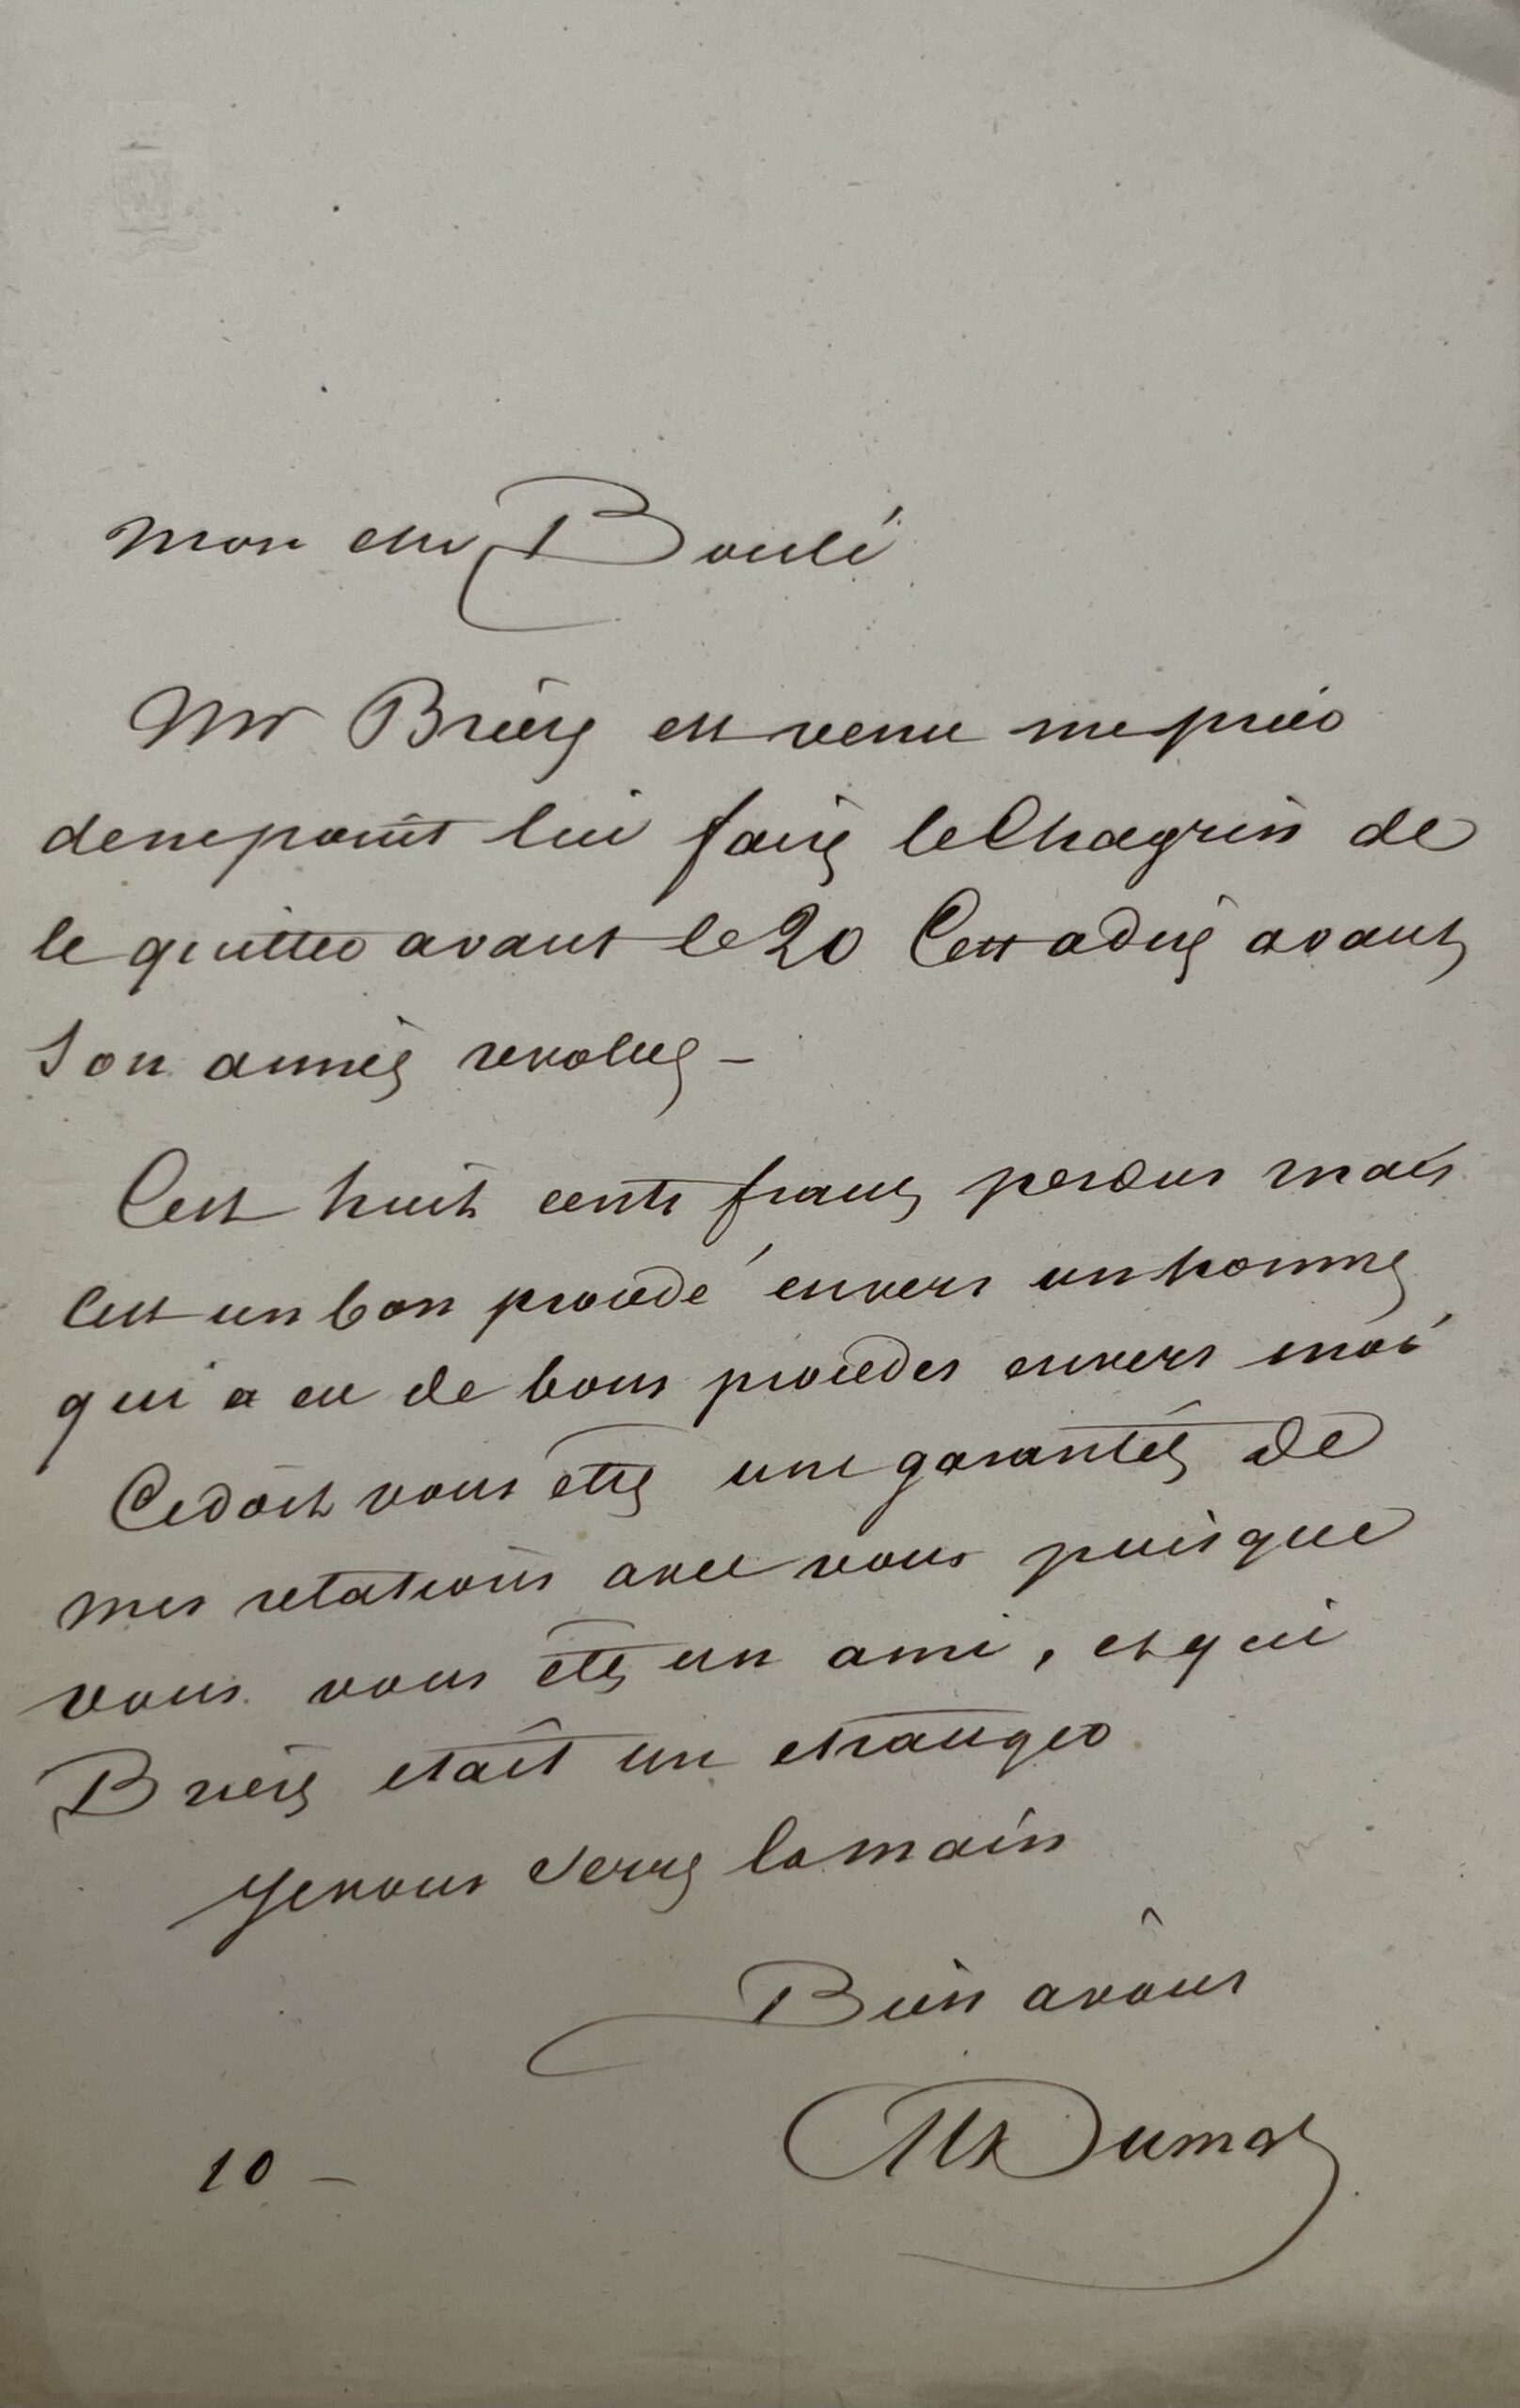 Mon cher Boulé
Mr Brière est venu me prier
de ne point lui faire le Chagrin de
le quitter avant le 20 C'est a dire avant
son année revolue –
C'est huit cents francs perdus mais
C'est un bon procédé envers un homme
qui a eu de bons procedes envers moi
Ce doit vous etre une garantie de
mes relations avec vous puisque
vous vous etes un ami, et qui
Brière etait un etranger
Je vous serre la main
Bien a vous
Alex Dumas
10 –